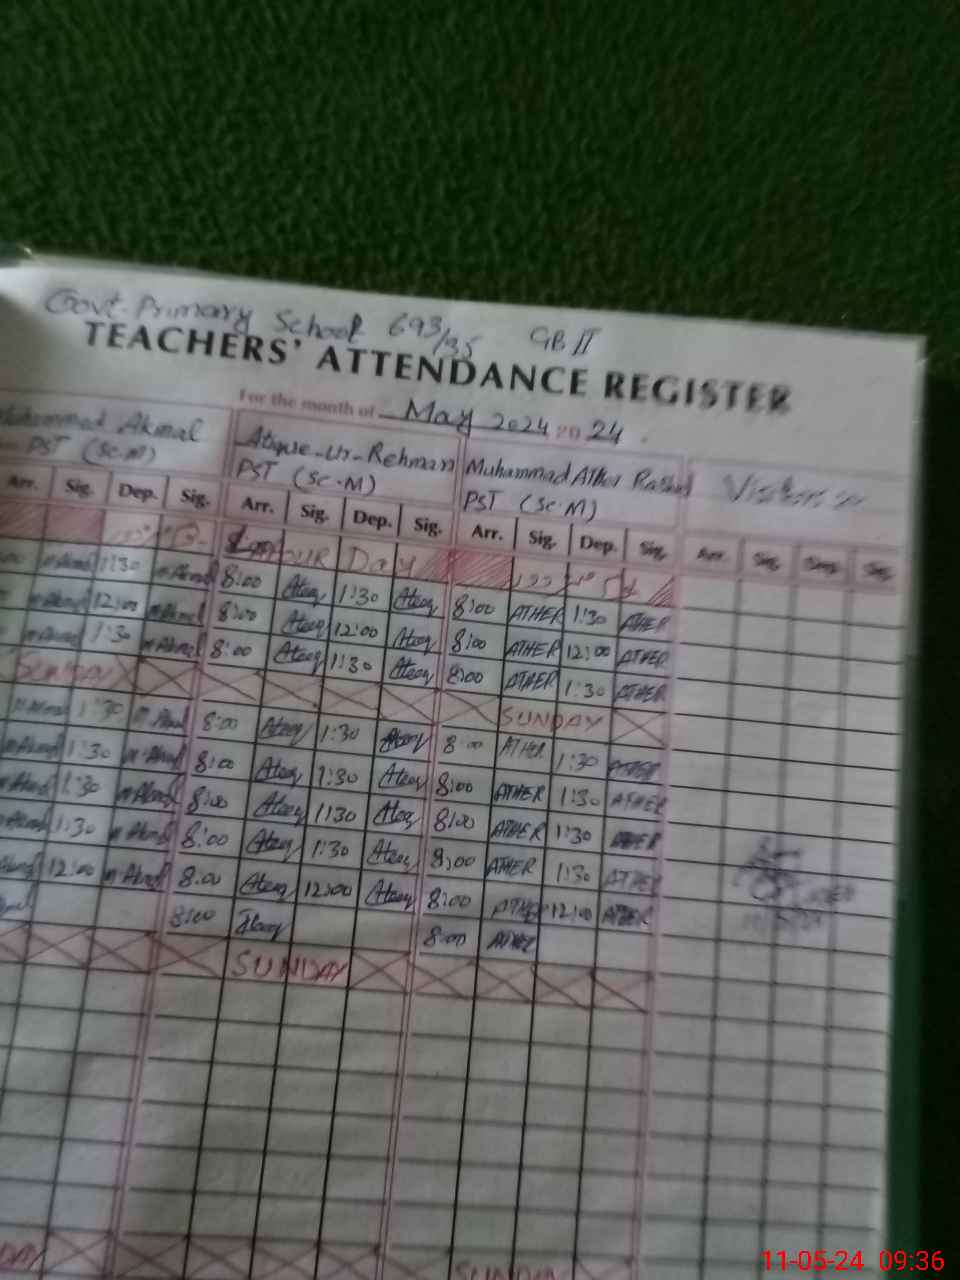 Govt. Primary School 693/35 GB II
TEACHERS' ATTENDANCE REGISTER
For the month of May 2024 20 24
Muhammad Akmal Atique-Ur-Rehman Muhammad Ather Rashid Visitors
PST (Sc.M) PST (Sc.M) PST (Sc.M)
Arr. Sig. Dep. Sig. Arr. Sig. Dep. Sig. Arr. Sig. Dep. Sig. Arr. Sig. Dep. Sig.
LABOUR Day
1:30 m Akmal 8:00 Ateeq 1:30 Ateeq 8:00 ATHER 1:30 ATHER
12:00 m Akmal 8:00 Ateeq 12:00 Ateeq 8:00 ATHER 12:00 ATHER
1:30 m Akmal 8:00 Ateeq 1:30 Ateeq 8:00 ATHER 1:30 ATHER
SUNDAY SUNDAY
1:30 m Akmal 8:00 Ateeq 1:30 Ateeq 8:00 ATHER 1:30 ATHER
1:30 m Akmal 8:00 Ateeq 1:30 Ateeq 8:00 ATHER 1:30 ATHER
1:30 m Akmal 8:00 Ateeq 1:30 Ateeq 8:00 ATHER 1:30 ATHER
1:30 m Akmal 8:00 Ateeq 1:30 Ateeq 8:00 ATHER 1:30 ATHER
12:00 m Akmal 8:00 Ateeq 12:00 Ateeq 8:00 ATHER 12:00 ATHER
8:00 Ateeq 8:00 ATHER
SUNDAY
SUNDAY
11-05-24 09:36